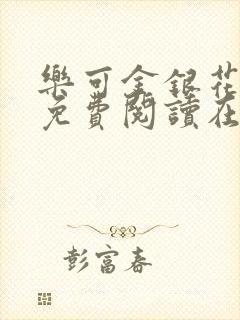 樂可金銀花
免費閱讀在
彭富春